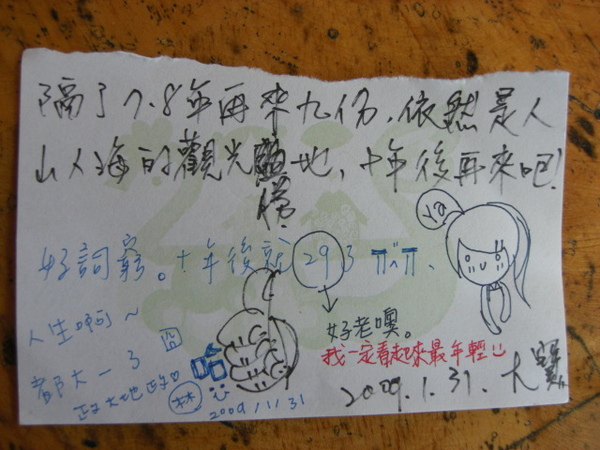 隔了7.8年再來九份,依然是人
山人海的觀光地,十年後再來吧!
Ya
好詞窮。十年後就293 ㅠ^ㅠ、
好老噢。
人生啊~
囧
我一定看起來最年輕
都大一了
哈
林
2009/1/31
2009.1.31. 大